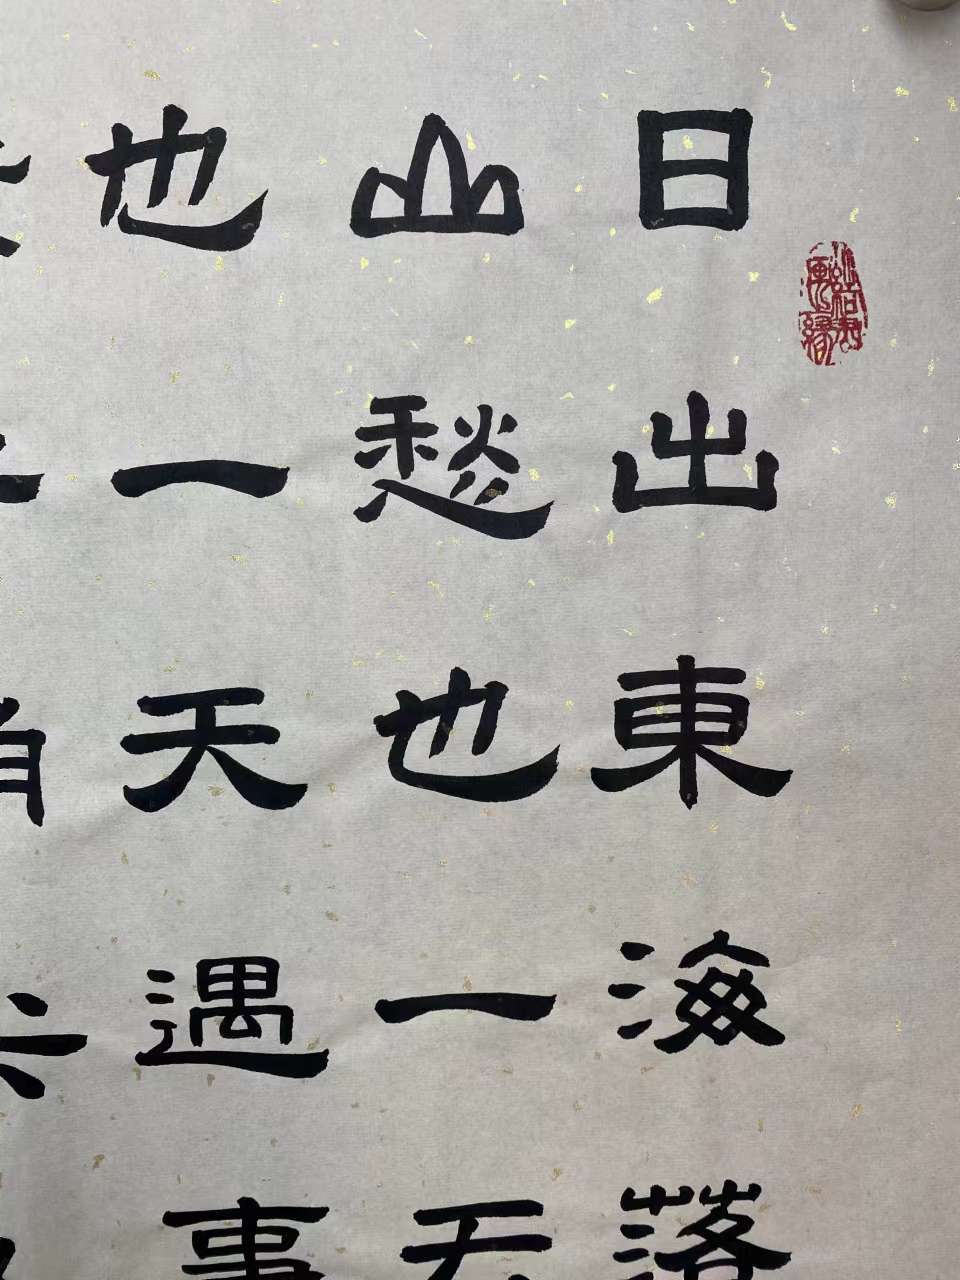 日出東海落
山愁也一天
也一天遇事